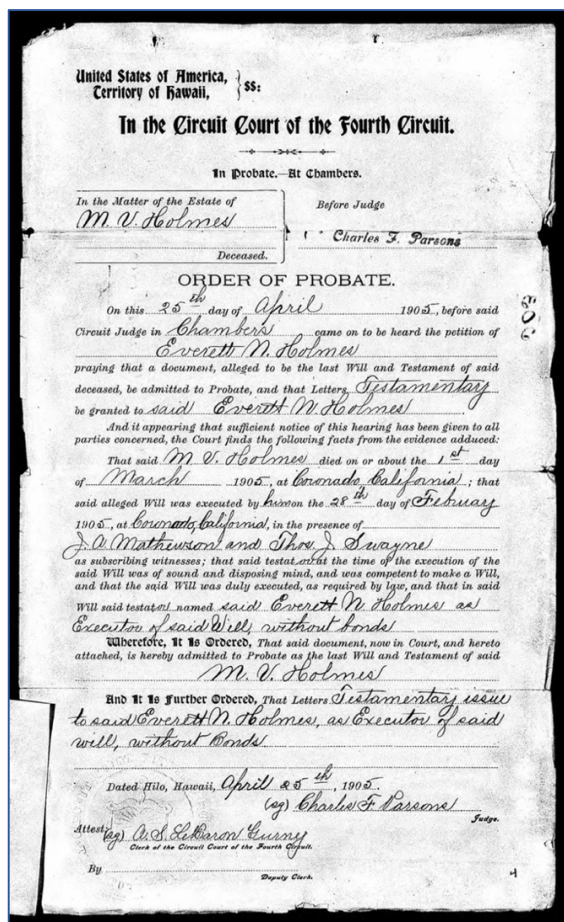 United States of America,
Territory of Hawaii, } SS:
In the Circuit Court of the Fourth Circuit.
In Probate.—At Chambers.
In the Matter of the Estate of
M. V. Holmes
Deceased.
Before Judge
Charles F. Parsons
ORDER OF PROBATE.
On this 25th day of April 1905, before said
Circuit Judge in Chambers came on to be heard the petition of
Everett N. Holmes
praying that a document, alleged to be the last Will and Testament of said
deceased, be admitted to Probate, and that Letters Testamentary
be granted to said Everett N. Holmes.
And it appearing that sufficient notice of this hearing has been given to all
parties concerned, the Court finds the following facts from the evidence adduced:
That said M. V. Holmes died on or about the 1st day
of March 1905, at Coronado, California; that
said alleged Will was executed by him on the 28th day of February
1905, at Coronado, California, in the presence of
J. A. Mathewson and Thos. J. Swayne
as subscribing witnesses; that said testator at the time of the execution of the
said Will was of sound and disposing mind, and was competent to make a Will,
and that the said Will was duly executed, as required by law, and that in said
Will said testator named said Everett N. Holmes as
Executor of said Will, without bonds
Wherefore, It Is Ordered, That said document, now in Court, and hereto
attached, is hereby admitted to Probate as the last Will and Testament of said
M. V. Holmes
And It Is Further Ordered, That Letters Testamentary issue
to said Everett N. Holmes, as Executor of said
will, without Bonds
Dated Hilo, Hawaii, April 25th, 1905.
(sg) Charles F. Parsons
Judge.
Attest: (sg) A. S. LeBaron Gurney
Clerk of the Circuit Court of the Fourth Circuit.
By
Deputy Clerk.
4